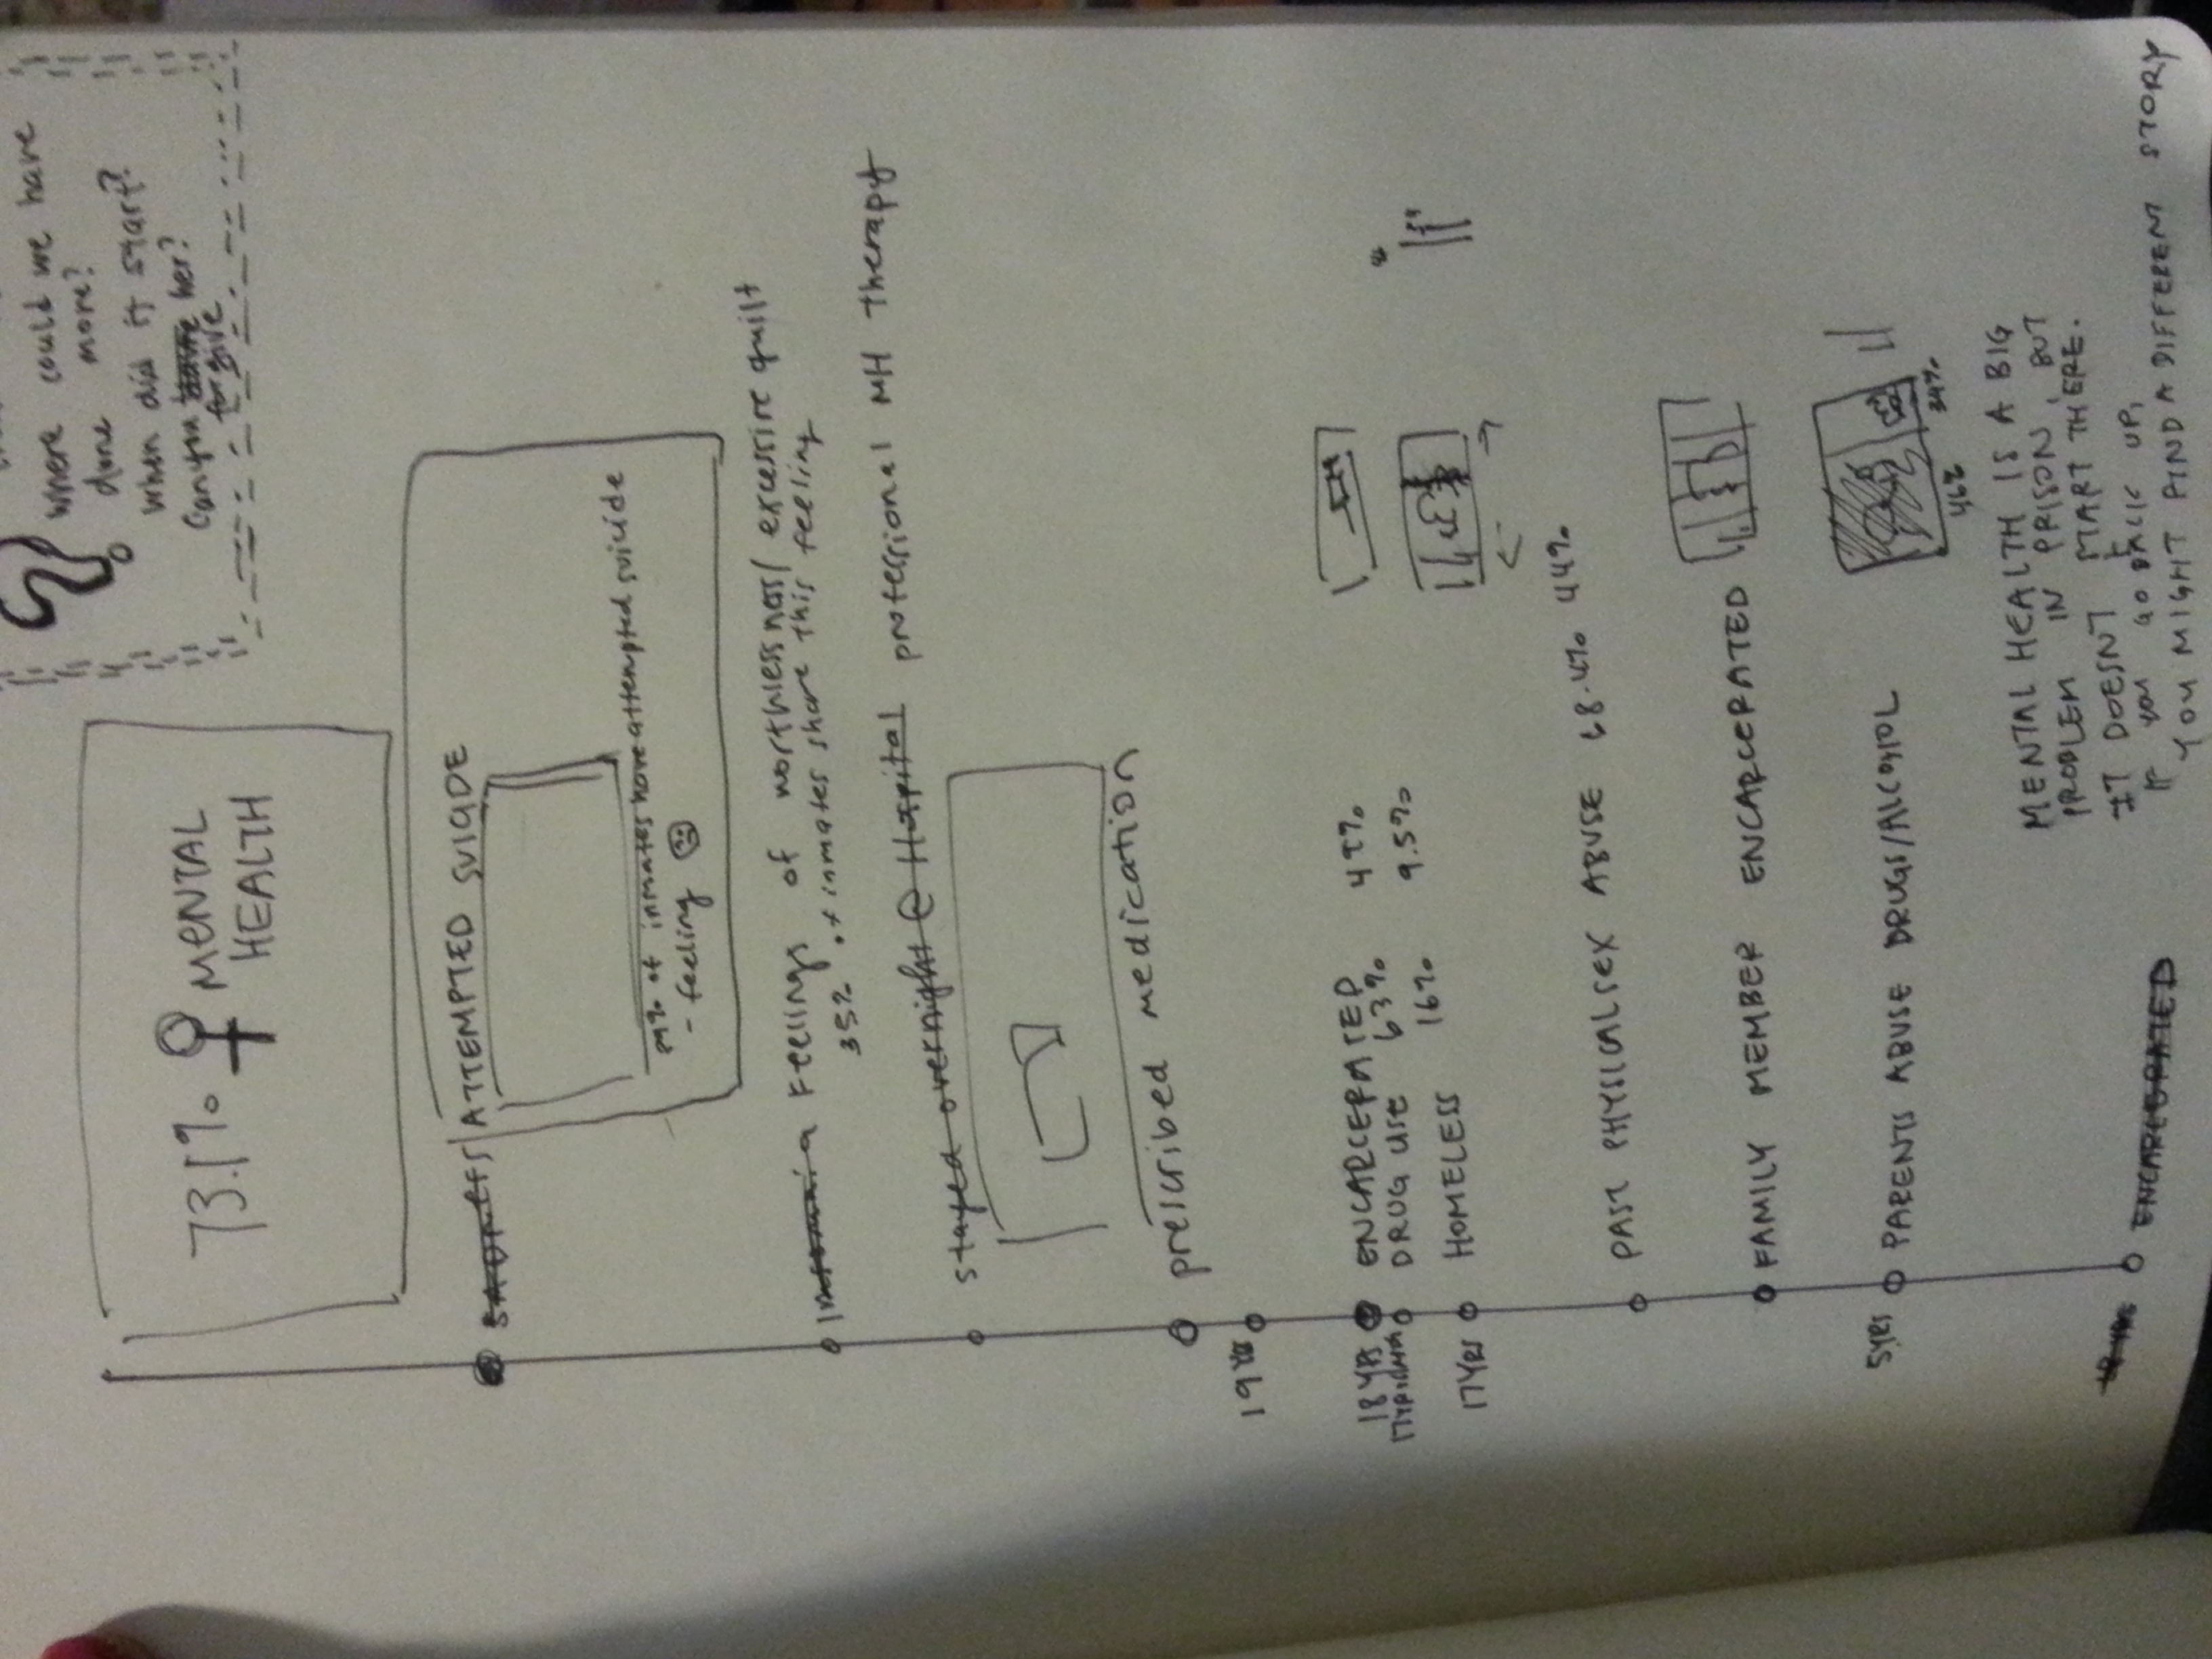 where could we have
done more?
when did it start?
Can you her?
forgive
73.1% MENTAL
HEALTH
SADNESS ATTEMPTED SUICIDE
of inmates have attempted suicide
- feeling
Insomnia Feelings of worthlessness/ excessive guilt
35% of inmates share this feeling
stayed overnight @ Hospital professional MH therapy
prescribed medication
19 YRS
18 YRS ENCARCERATED
DRUG USE 63%
17YRS HOMELESS 16% 9.5%
PAST PHYSICAL SEX ABUSE 68.4% 44%
FAMILY MEMBER ENCARCERATED
5YRS PARENTS ABUSE DRUGS/ALCOHOL
46% 34%
MENTAL HEALTH IS A BIG
PROBLEM IN PRISON, BUT
IT DOESNT START THERE.
IF YOU GO BACK UP,
YOU MIGHT FIND A DIFFERENT STORY
18 YRS ENCARCERATED